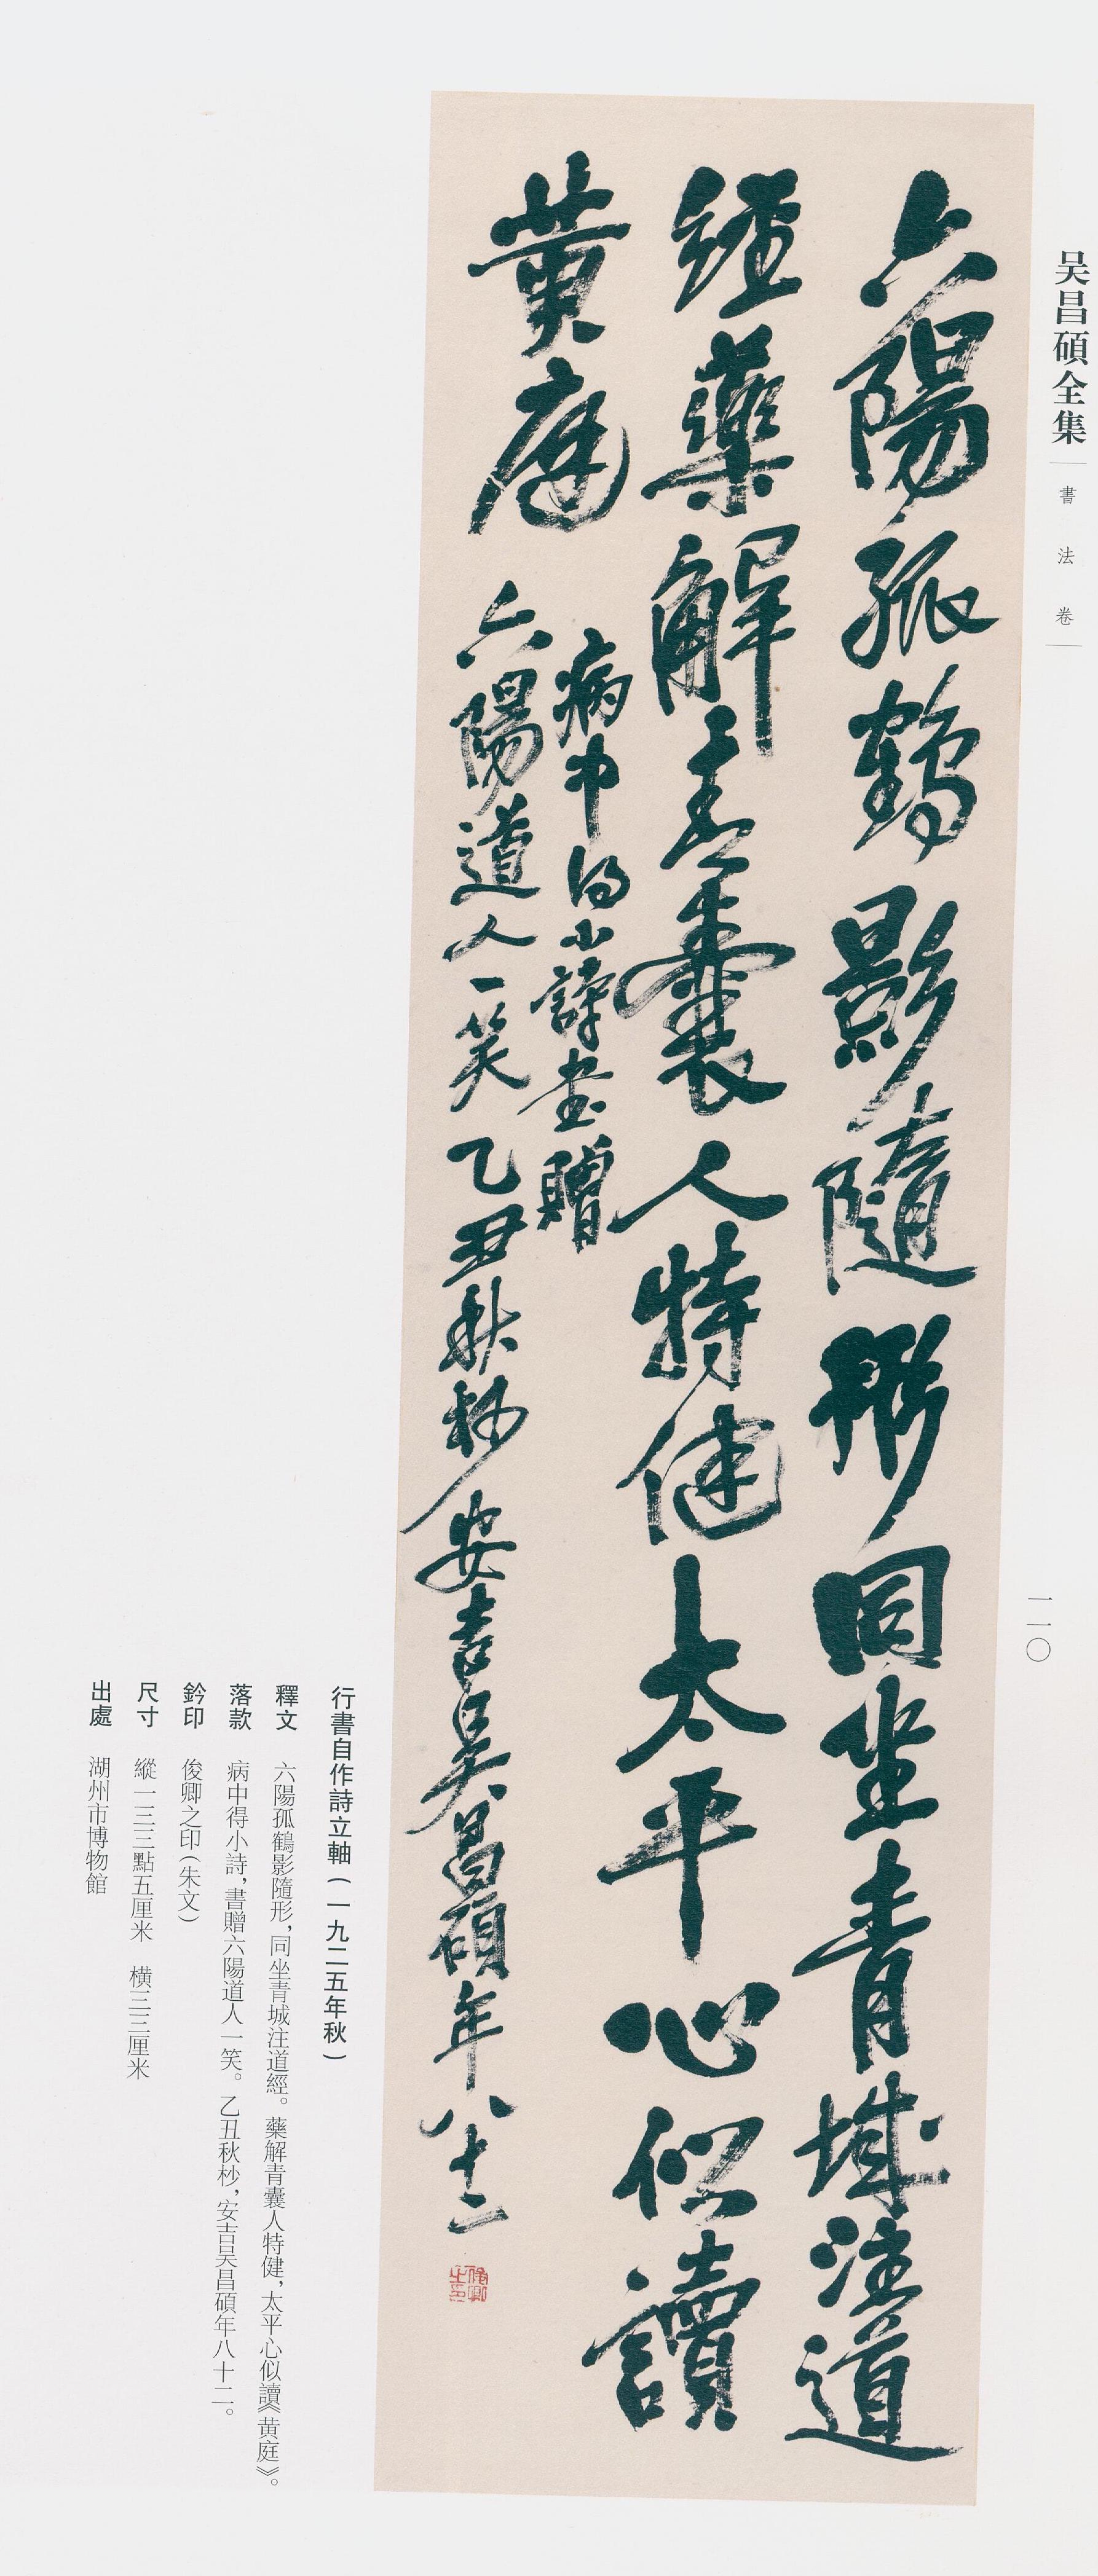 吴昌碩全集
書法卷
一一〇
六陽孤鶴影隨形同坐青城注道
經藥解青囊人特健太平心似讀
黄庭
病中得小詩書贈
六陽道人一笑乙丑秋杪安吉吴昌碩年八十二
俊卿之印
行書自作詩立軸(一九二五年秋)
釋文 六陽孤鶴影隨形,同坐青城注道經。藥解青囊人特健,太平心似讀《黄庭》。
落款 病中得小詩,書贈六陽道人一笑。乙丑秋杪,安吉吴昌碩年八十二。
鈐印 俊卿之印(朱文)
尺寸 縱一三三點五厘米 横三三厘米
出處 湖州市博物館